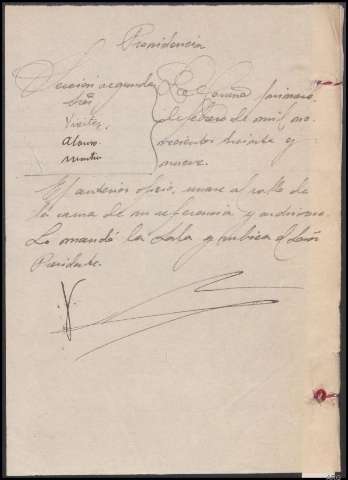 Providencia
Sección segunda
Sres
Vieitez
Alonso
Martin
La Coruña primero
de febrero de mil no-
vecientos treinta y
nueve.
El anterior oficio, unase al rollo de
la causa de su referencia y
Lo mandó la Sala y rubrica el Señor
Presidente.